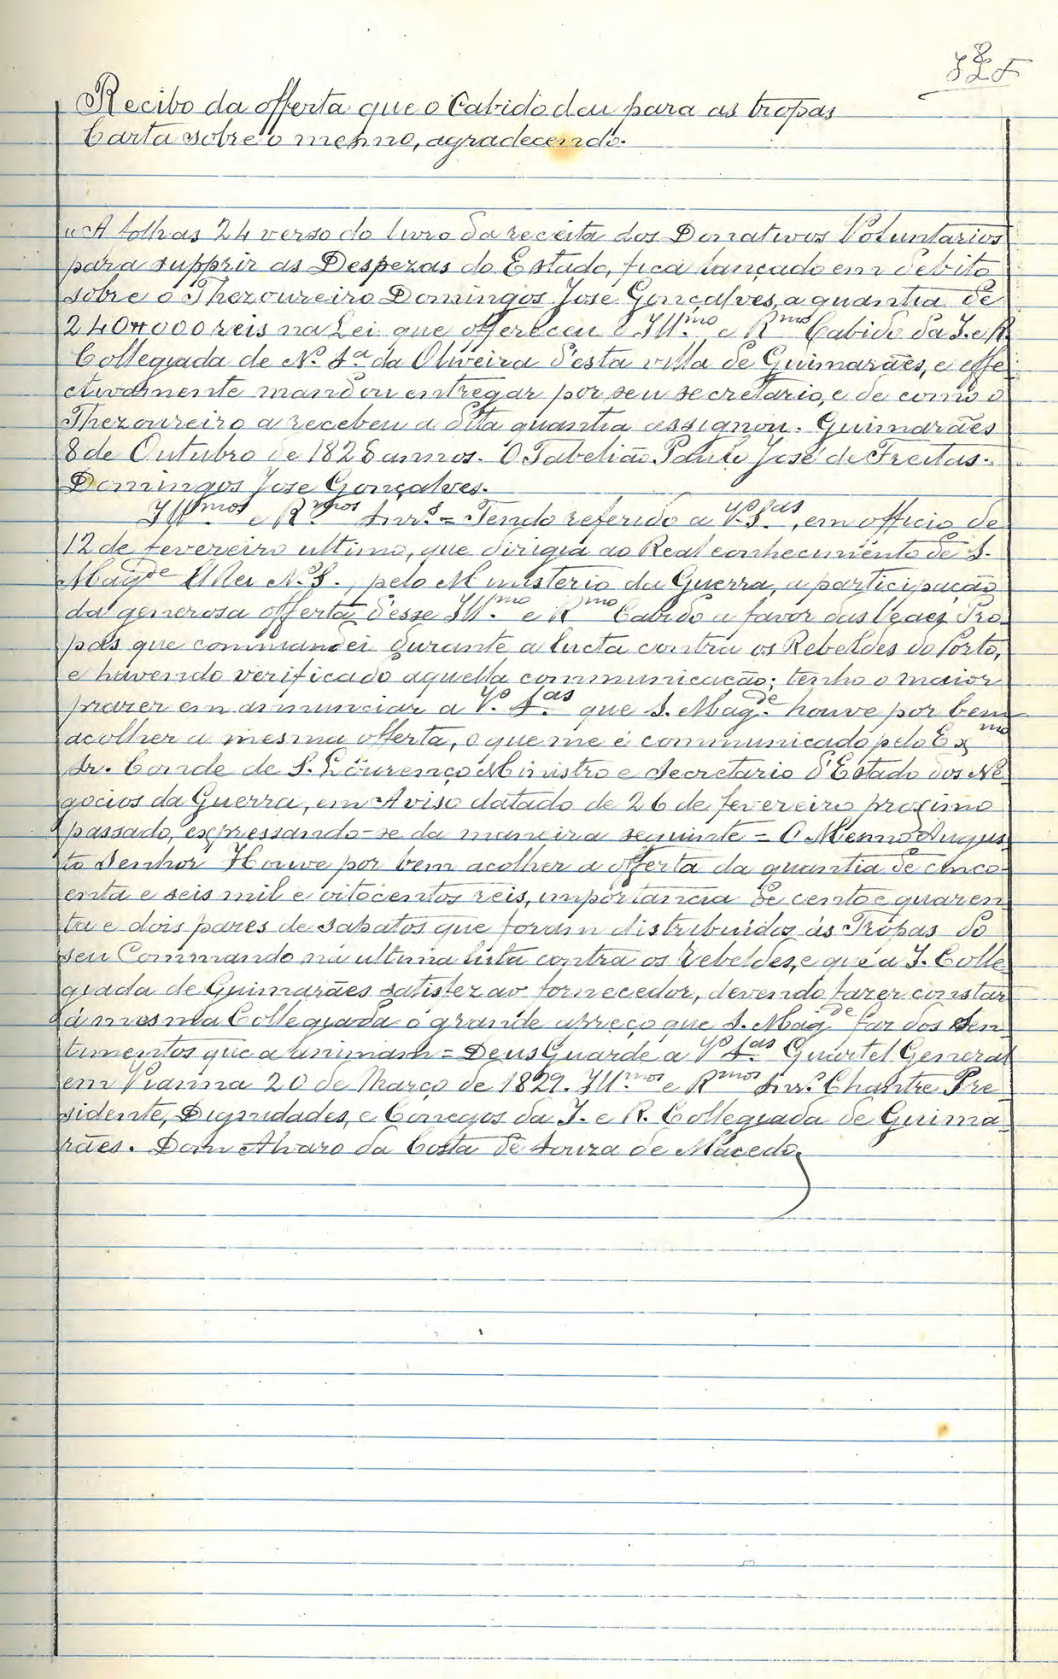 Recibo da offerta que o Cabido deu para as tropas
Carta sobre o mesmo, agradecendo.
"A folhas 24 verso do livro da receita dos Donativos Voluntarios
para supprir as Despezas do Estado, fica lançado em debito
sobre o Thezoureiro Domingos José Gonçalves, a quantia de
240#000 reis na Lei que offereceu o Ill.mo e R.mo Cabido da I. e R.
Collegiada de N.ª S.ª da Oliveira d'esta villa de Guimarães, e effe
ctivamente mandou entregar por seu secretario, e de como o
Thezoureiro a recebeu a dita quantia assignou. Guimarães
8 de Outubro de 1828 annos. O Tabelião Paulo José de Freitas.
Domingos José Gonçalves.
Ill.mos e R.mos Snr.s = Tendo referido a V.as S.as, em officio de
12 de fevereiro ultimo, que dirigia ao Real conhecimento de S.
Mag.de ElRei N. S., pelo Ministerio da Guerra, a participação
da generosa offerta d'esse Ill.mo e R.mo Cabido a favor das Leaes Tro
pas que commandei durante a lucta contra os Rebeldes do Porto,
e havendo verificado aquella communicação; tenho o maior
prazer em annunciar a V.as S.as que S. Mag.de houve por bem
acolher a mesma offerta, o que me é communicado pelo Ex.mo
Sr. Conde de S. Lourenço Ministro e Secretario d'Estado dos Ne
gocios da Guerra, em Aviso datado de 26 de fevereiro proximo
passado, expressando-se da maneira seguinte = O Mesmo Augus
to Senhor Houve por bem acolher a offerta da quantia de cinco
enta e seis mil e oitocentos reis, importancia de cento e quaren
ta e dois pares de sapatos que foram distribuidos ás Tropas do
seu Commando na ultima luta contra os rebeldes, e que a I. Colle
giada de Guimarães satisfez ao fornecedor, devendo fazer constar
á mesma Collegiada o grande apreço que S. Mag.de faz dos sen
timentos que a animam = Deus Guarde a V.as S.as Quartel General
em Vianna 20 de Março de 1829. Ill.mos e R.mos Snr.s Chantre Pre
sidente, Dignidades, e Conegos da I. e R. Collegiada de Guima
rães. Dom Alvaro da Costa de Souza de Macedo.